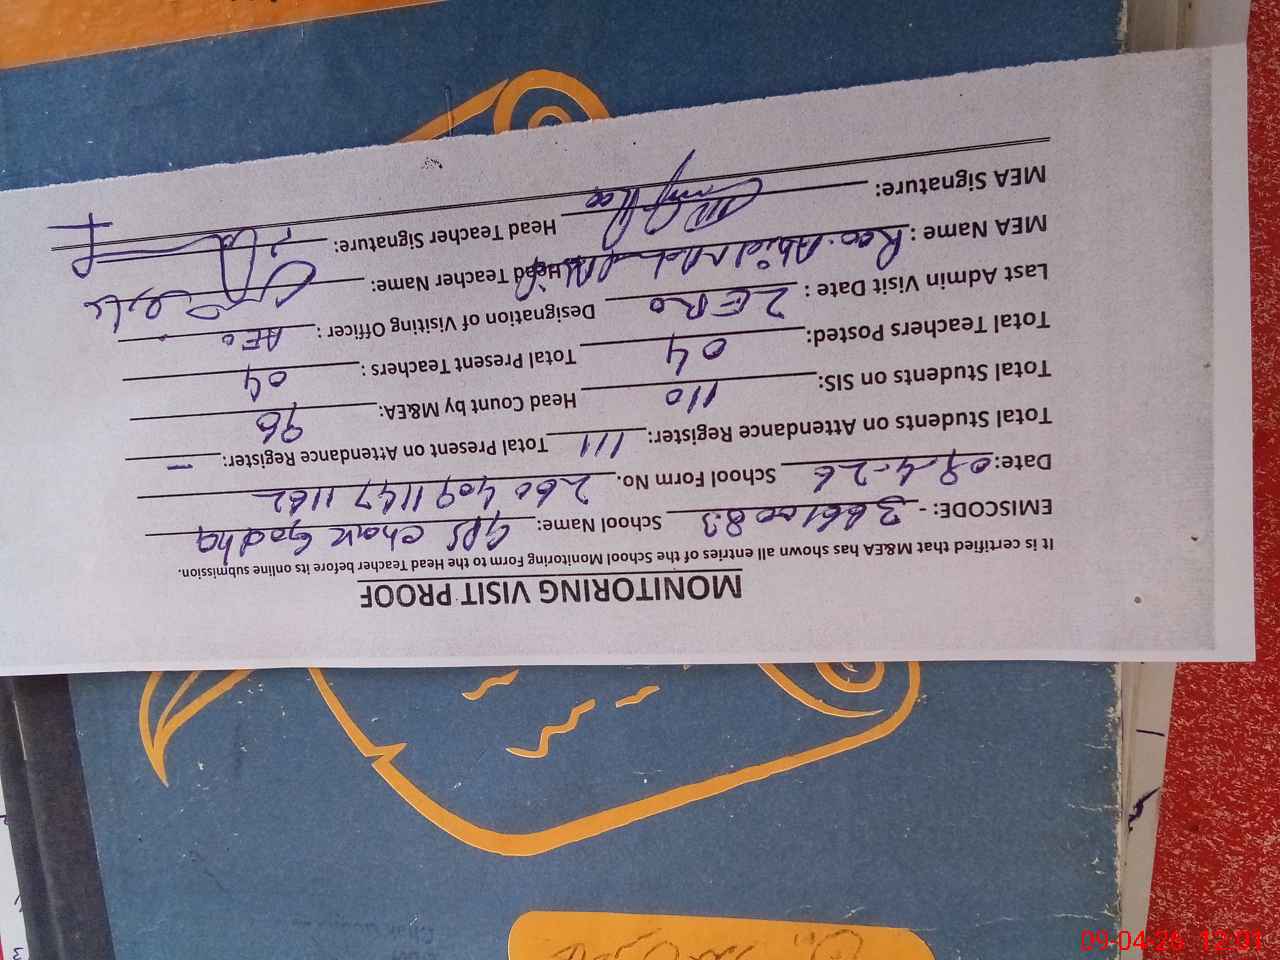 MONITORING VISIT PROOF
It is certified that M&EA has shown all entries of the School Monitoring Form to the Head Teacher before its online submission.
EMISCODE: - 36610083 School Name: GPS Chak Godha
Date: 09-4-26 School Form No. 2604091147 1162
Total Students on Attendance Register: 111 Total Present on Attendance Register: -
Total Students on SIS: 110 Head Count by M&EA: 96
Total Teachers Posted: 04 Total Present Teachers : 04
Last Admin Visit Date : ZERO Designation of Visiting Officer : AEO
MEA Name : Rao. Abid Head Teacher Name:
MEA Signature: Head Teacher Signature:
09-04-26 12:01